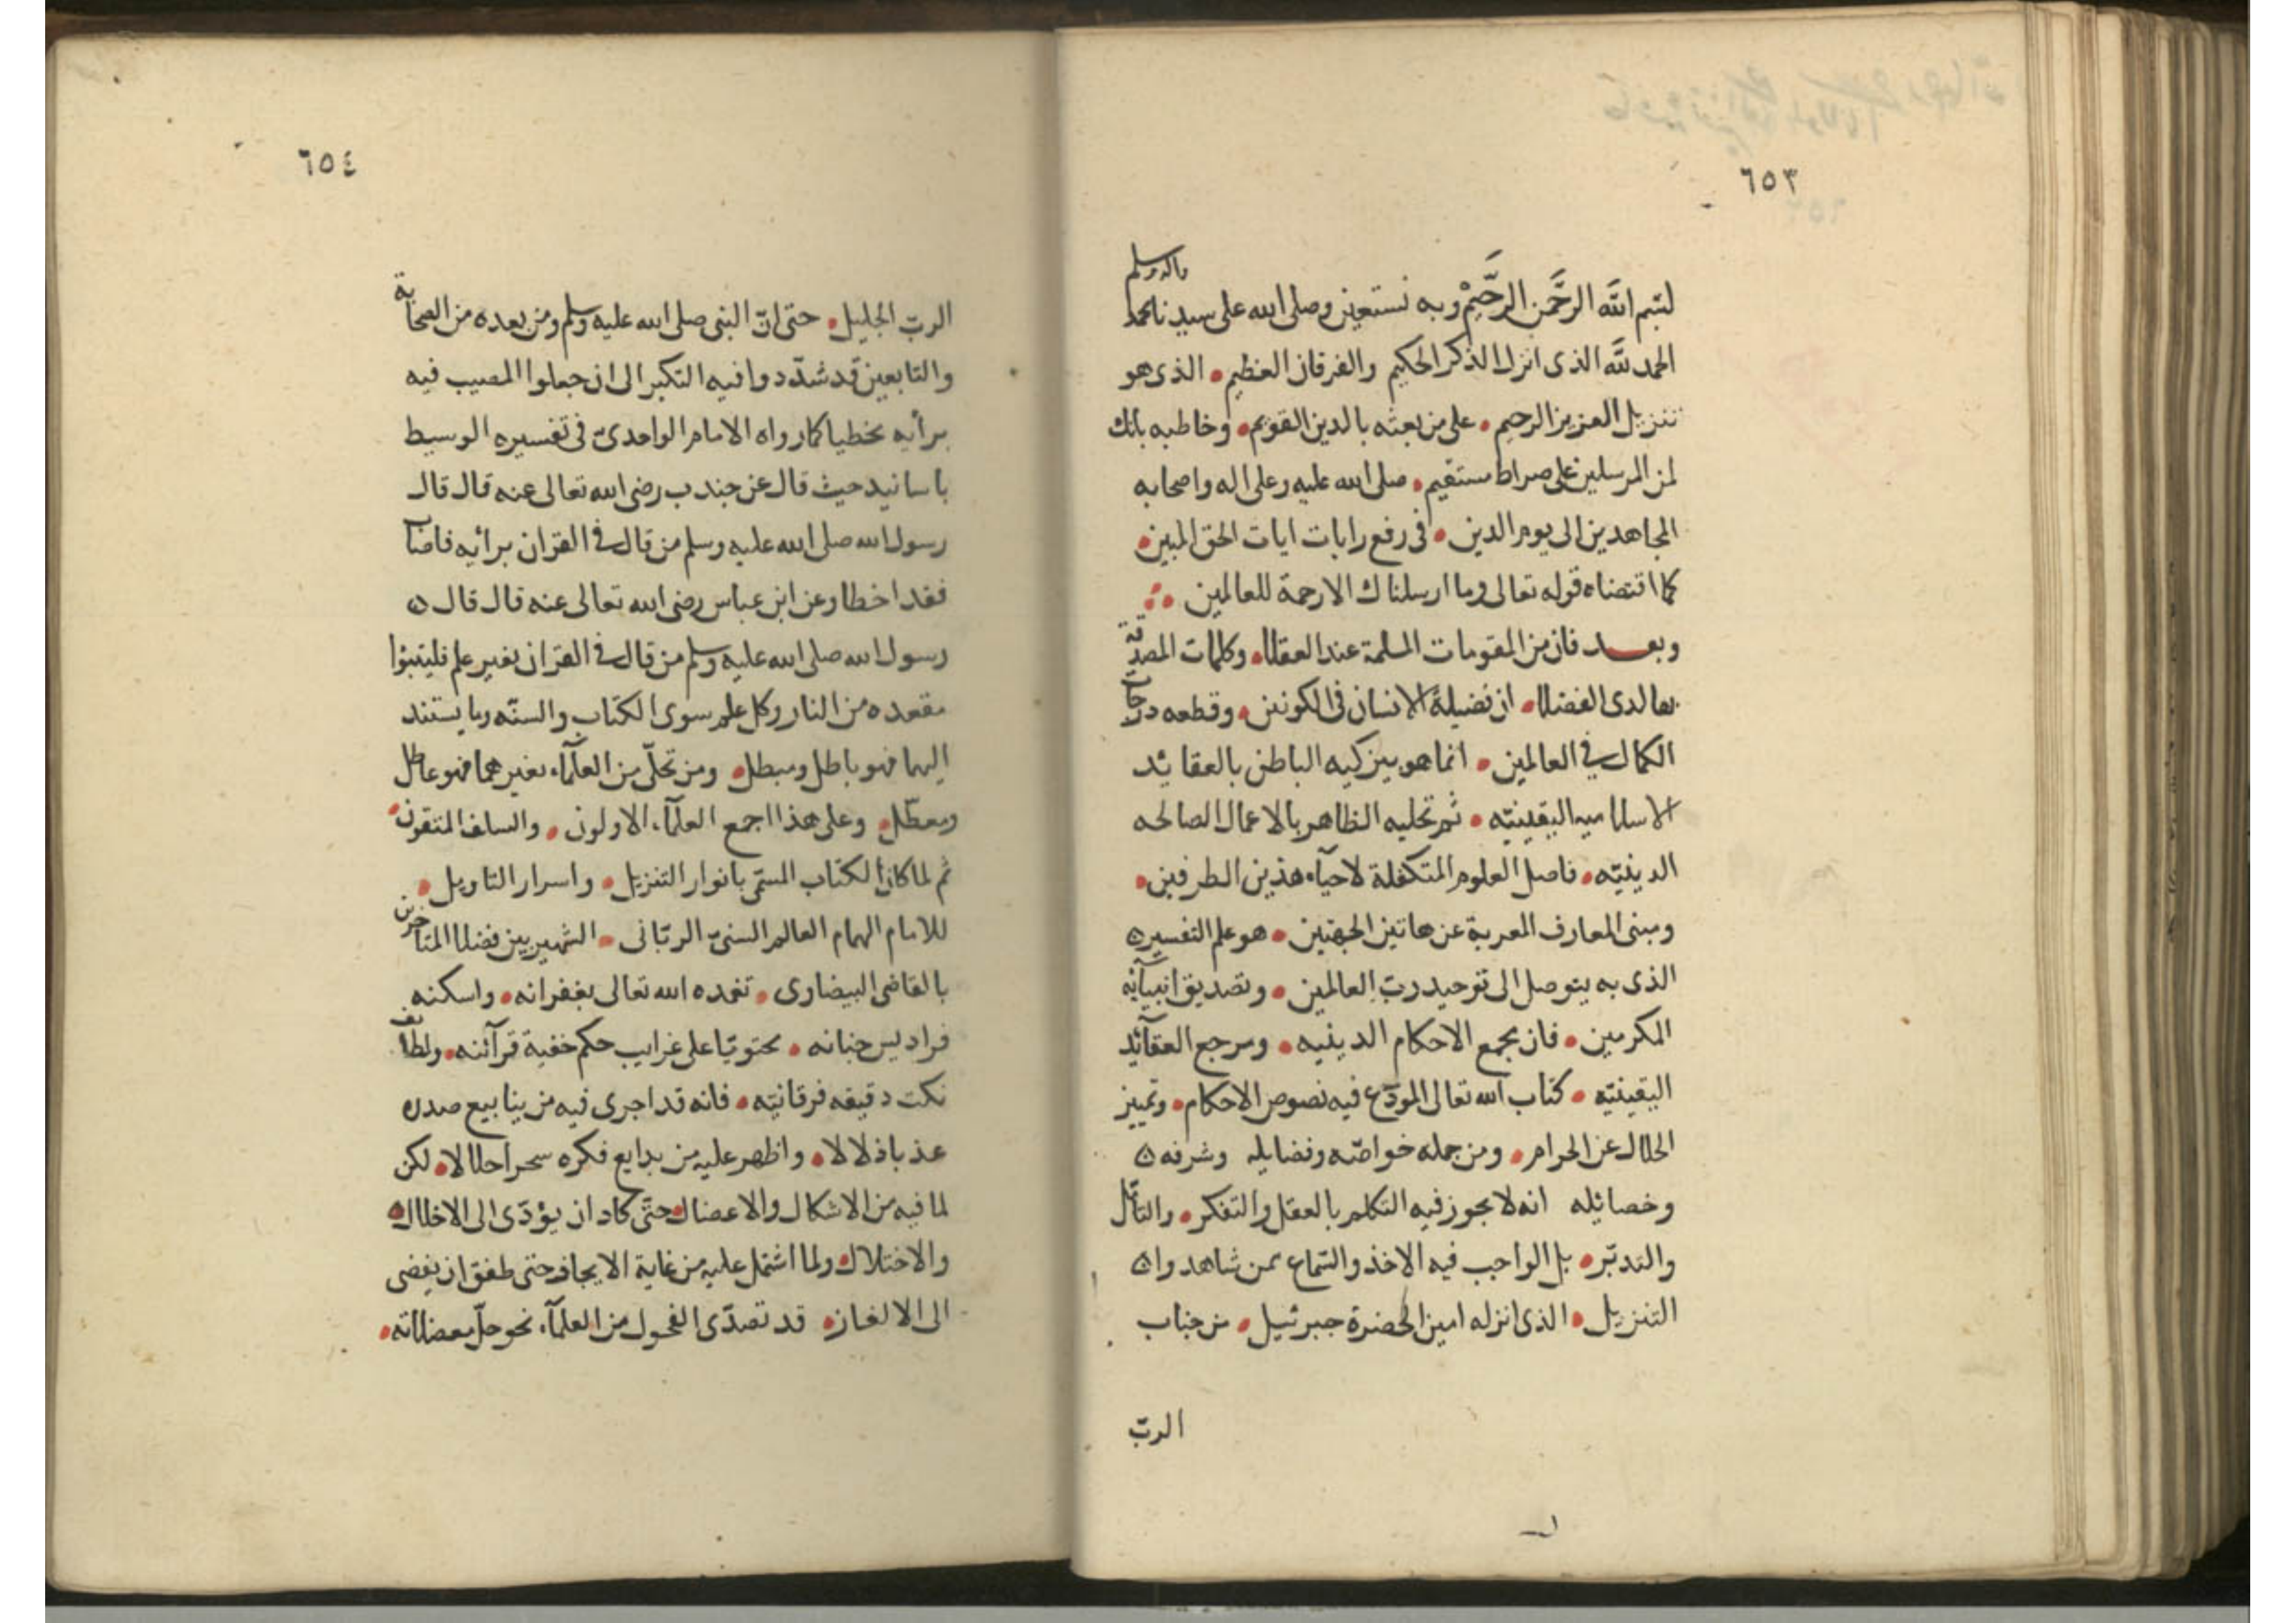 ٦٥٣
بسم الله الرَّحمَن الرَّحَيمْ وبه نستعين وصلى الله على سيدنا محمد واله وسلم
الحمد لله الذى انزل الذكر الحكيم والفرقان العظيم • الذى هو
تنزيل العزيز الرحيم • على من بعثه بالدين القويم • وخاطبه بانك
لمن المرسلين على صراط مستقيم • صلى الله عليه وعلى اله واصحابه
المجاهدين الى يوم الدين • فى رفع رايات ايات الحق المبين •
كما اقتضاه قوله تعالى وما ارسلناك الا رحمة للعالمين
وبعد فان من المقومات المسلمة عند العقلا • وكلمات المصدقة
بها لدى الفضلا • ان فضيلة الانسان فى الكونين • وقطعه درجات
الكمال فى العالمين • انما هو بتزكيه الباطن بالعقائد
الاسلاميه اليقينيّه • ثم تحليه الظاهر بالاعمال الصالحه
الدينيّه • فاصل العلوم المتكفلة لاحيآء هذين الطرفين •
ومبنى المعارف المعربة عن هاتين الجهتين • هو علم التفسير
الذى به يتوصل الى توحيد ربّ العالمين • وتصديق انبيآئه
المكرمين • فان مجمع الاحكام الدينيه • ومرجع العقآئد
اليقينيّه • كتاب الله تعالى المودّع فيه نصوص الاحكام • وتميز
الحلال عن الحرام • ومن جمله خواصّه وفضايله وشرفه
وخصائله انه لا يجوز فيه التكلم بالعقل والتفكر • والتأمّل
والتدبّر • بل الواجب فيه الاخذ والسّماع ممن شاهدوا
التنزيل • الذى انزله امين الحضرة جبرئيل • من جناب
الربّ
٦٥٤
الربّ الجليل • حتى انّ النبى صلى الله عليه وسلم ومن بعده من الصحابة
والتابعين قد شدّدوا فيه النكير الى ان جعلوا المصيب فيه
برأيه مخطيا كما رواه الامام الواحدىّ فى تفسيره الوسيط
باسانيد حيث قال عن جندب رضى الله تعالى عنه قال قال
رسول الله صلى الله عليه وسلم من قال فى القران برائيه فاصاب
فقد اخطا وعن ابن عباس رضى الله تعالى عنه قال قال
رسول الله صلى الله عليه وسلم من قال فى القران بغير علم فليتبؤا
مقعده من النار وكل علم سوى الكتاب والسنّه وما يستند
اليهما فهو باطل ومبطل • ومن تحلّى من العلمآء بغيرهما فهو عاطل
ومعطّل • وعلى هذا اجمع العلمآء الاولون • والسلف المتقون •
ثم لما كان الكتاب المسمّى بانوار التنزيل • واسرار التاويل •
للامام الهمام العالم السنىّ الربّانى • الشهير بين فضلا المتاخرين
بالقاضى البيضاوى • تغمده الله تعالى بغفرانه • واسكنه
فراديس جنانه • محتويّا على غرايب حكم خفية قرآنيه • ولطائف
نكت دقيقه فرقانيّه • فانه قد اجرى فيه من ينابيع صدره
عذبا ذلالا • واظهر عليه من بدايع فكره سحرا حلالا • لكن
لما فيه من الاشكال والاعضال • حتّى كاد ان يؤدّى الى الاخلال
والاختلال • ولما اشتمل عليه من غاية الايجاز • حتى طفق ان يفضى
الى الالغاز • قد تصدّى الفحول من العلمآء نحو حلّ معضلاته •